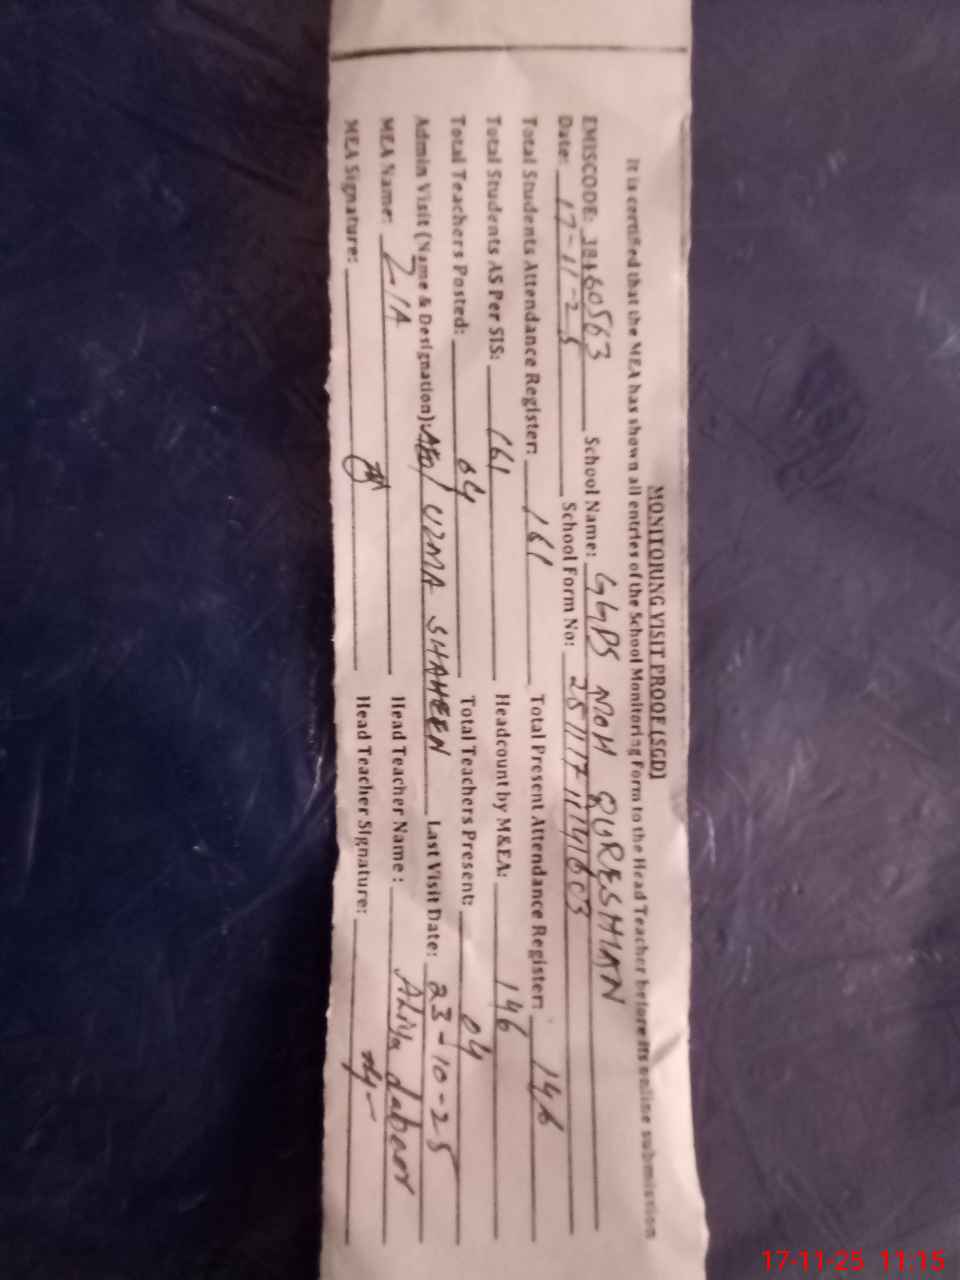 MONITORING VISIT PROOF (SGD)
It is certified that the MEA has shown all entries of the School Monitoring Form to the Head Teacher before its online submission
EMISCODE: 38460563 School Name: GGPS NOH QURESHIAN
Date: 17-11-25 School Form No: 2511171114603
Total Students Attendance Register: 161 Total Present Attendance Register: 146
Total Students AS Per SIS: 161 Headcount by M&EA: 146
Total Teachers Posted: 04 Total Teachers Present: 04
Admin Visit (Name & Designation): AEO/ UZMA SHAHEEN Last Visit Date: 23-10-25
MEA Name: ZIA Head Teacher Name :
MEA Signature: Head Teacher Signature:
17-11-25 11:15